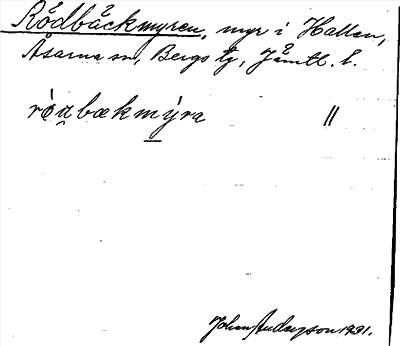 Rödbäckmyren, myr i Hallen,
Åsarna sn, Bergs tg, Jämtl. l.
róa̯bækmýra //
Johan Anderson 1931.